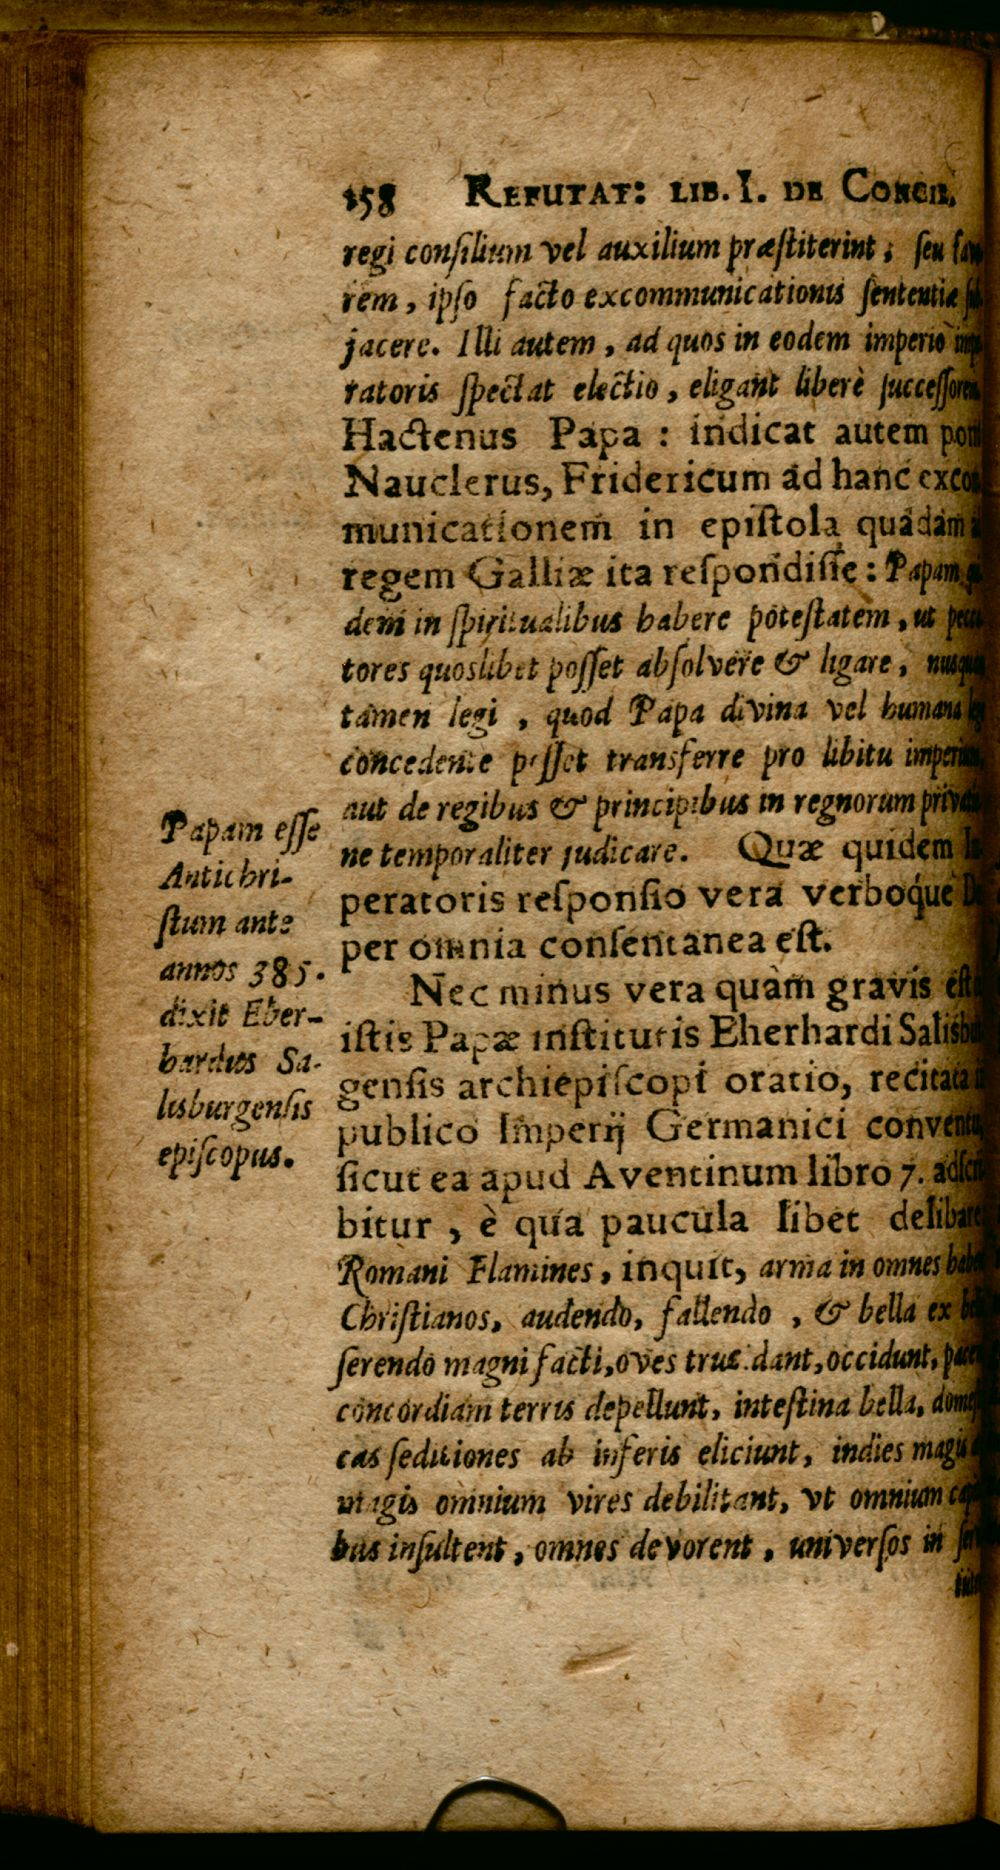 158 REFUTAT: LIB. I. DE CONCIL.
regi consilium vel auxilium præstiterint, seu
rem, ipso facto excommunicationis sententiæ
jacere. Illi autem, ad quos in eodem imperio
ratoris spectat electio, eligant liberè successorem
Hactenus Papa: indicat autem
Nauclerus, Fridericum ad hanc
municationem in epistola quadam
regem Galliæ ita respondisse: Papam
dem in spiritualibus habere potestatem, ut
tores quoslibet posset absolvere & ligare,
tamen legi, quod Papa divina vel humana
concedente posset transferre pro libitu imperium,
aut de regibus & principibus in regnorum
ne temporaliter judicare. Quæ quidem
peratoris responsio vera verboque
per omnia consentanea est.
Nec minus vera quàm gravis est
istis Papæ institutis Eherhardi
gensis archiepiscopi oratio, recitata
publico Imperij Germanici conventu,
sicut ea apud Aventinum libro 7.
bitur, è qua paucula libet delibare
Romani Flamines, inquit, arma in omnes
Christianos, audendo, fallendo, & bella ex
serendo magni facti, oves trucidant, occidunt,
concordiam terris depellunt, intestina bella,
cas seditiones ab inferis eliciunt, indies magis
magis omnium vires debilitant, vt omnium
bus insultent, omnes devorent, universos in
Papam esse
Antichri-
stum ante
annos 385.
dixit Eber-
hardus Sa-
lisburgensis
episcopus.